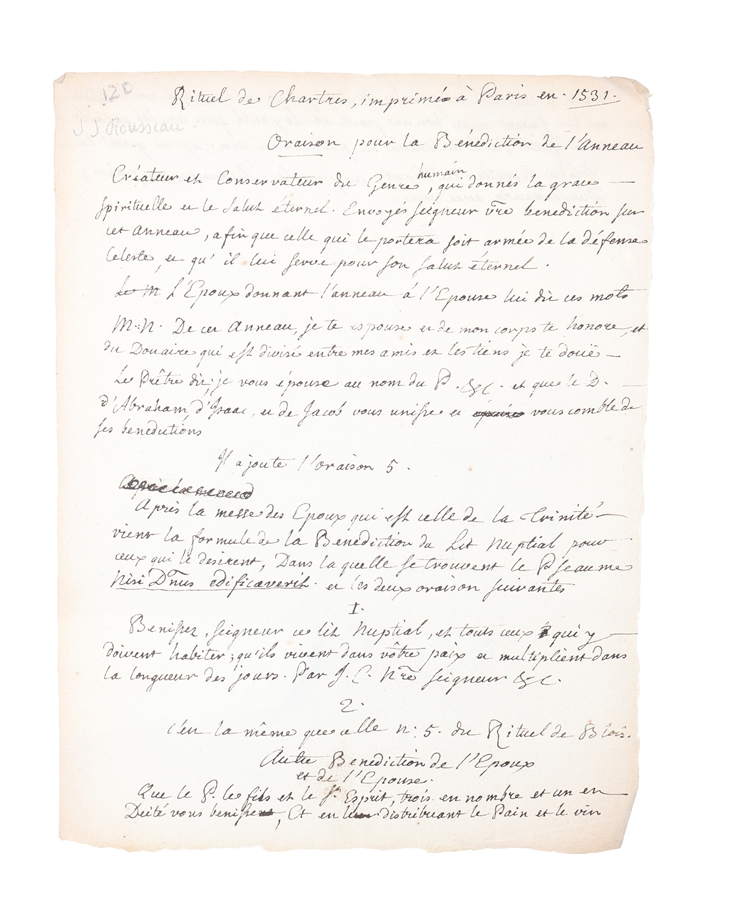 120
J J Rousseau
Rituel de Chartres, imprimée à Paris en 1531.
Oraison pour la Bénédiction de l'Anneau
Créateur et Conservateur du Genre humain, qui donnés la grace
spirituelle et le Salut éternel. Envoyés Seigneur vre benediction sur
cet Anneau, afin que celle qui le portera soit armée de la défense
Celeste, et qu'il lui serve pour son salut éternel.
L'Epoux donnant l'anneau à l'Epouse lui dit ces mots
M. N. De cet Anneau, je te espouse et de mon corps te honore, et
du Douaire qui est divisé entre mes amis et les tiens je te douë
Le Prêtre dit, je vous épouse au nom du P. &c. et que le D.
d'Abraham, d'Isaac, et de Jacob vous unisse et vous comble de
ses benedictions
Il ajoute l'oraison 5.
Après la messe des Epoux qui est celle de la Trinité
vient la formule de la Benediction du Lit Nuptial pour
ceux qui le desirent, Dans la quelle se trouvent le Pseaume
Nisi Dnus edificaverit. et les deux oraison suivantes
1.
Benissez, Seigneur ce lit Nuptial, et touts ceux qui y
doivent habiter; qu'ils vivent dans vôtre paix et multiplient dans
la longueur des jours. Par J. C. Nre Seigneur &c.
2.
c'en la même que celle n: 5. du Rituel de Blois.
Autre Benediction de l'Epoux
et de l'Epouse.
Que le P. le fils et le St. Esprit, trois en nombre et un en
Deité vous benisse, Et en distribuant le Pain et le vin